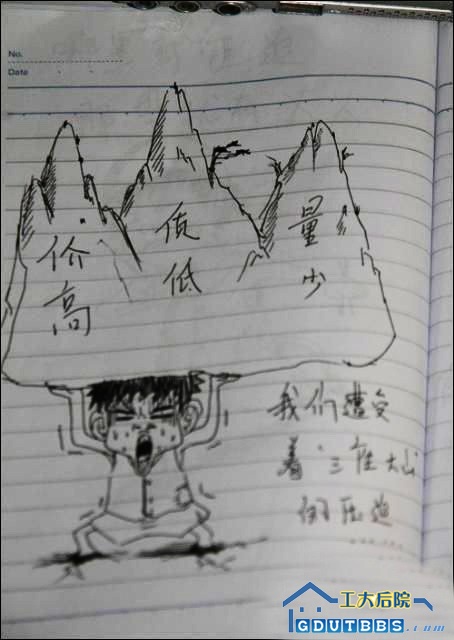 No.
Date
价高
质低
量少
我们遭受
着“三座大山”
的压迫
工大后院
GDUTBBS.com